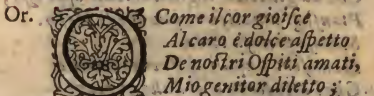 Or. O Come il cor gioiſce
Al caro e dolce aſpetto
De noſtri Oſpiti amati,
Mio genitor diletto;